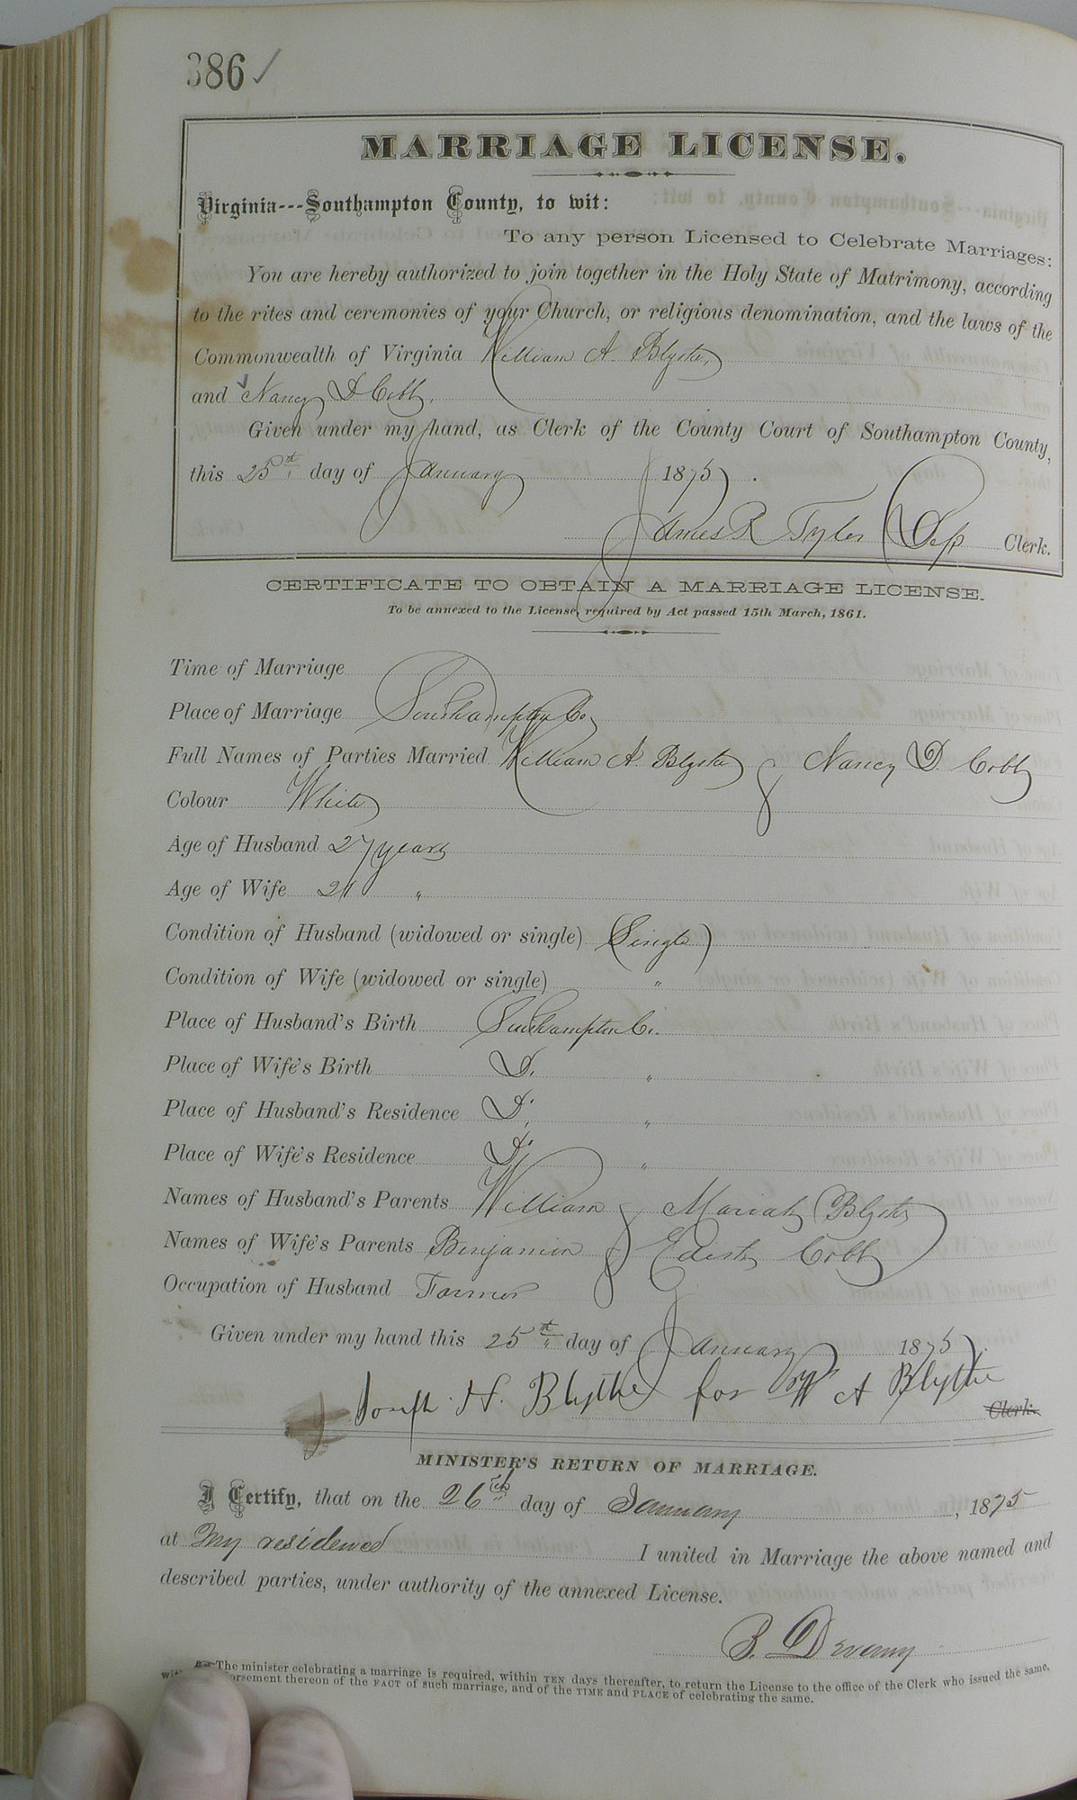 386 ✓
MARRIAGE LICENSE.
Virginia---Southampton County, to wit:
To any person Licensed to Celebrate Marriages:
You are hereby authorized to join together in the Holy State of Matrimony, according
to the rites and ceremonies of your Church, or religious denomination, and the laws of the
Commonwealth of Virginia William A. Blythe
and Nancy D Cobb.
Given under my hand, as Clerk of the County Court of Southampton County,
this 25st day of January 1875.
James R Tyler Dep Clerk.
CERTIFICATE TO OBTAIN A MARRIAGE LICENSE.
To be annexed to the License, required by Act passed 15th March, 1861.
Time of Marriage
Place of Marriage Southampton Co
Full Names of Parties Married William A. Blythe & Nancy D. Cobb
Colour White
Age of Husband 27 years
Age of Wife 21 "
Condition of Husband (widowed or single) Single
Condition of Wife (widowed or single) "
Place of Husband's Birth Southampton Co.
Place of Wife's Birth D. "
Place of Husband's Residence D. "
Place of Wife's Residence D. "
Names of Husband's Parents William & Mariah Blythe
Names of Wife's Parents Benjamin & Edith Cobb
Occupation of Husband Farmer
Given under my hand this 25st day of January 1875.
Joseph H. Blythe for W A Blythe
Clerk.
MINISTER'S RETURN OF MARRIAGE.
I Certify, that on the 26th day of January, 1875
at My residence I united in Marriage the above named and
described parties, under authority of the annexed License.
B. Devany
The minister celebrating a marriage is required, within TEN days thereafter, to return the License to the office of the Clerk who issued the same,
thereon of the FACT of such marriage, and of the TIME and PLACE of celebrating the same.